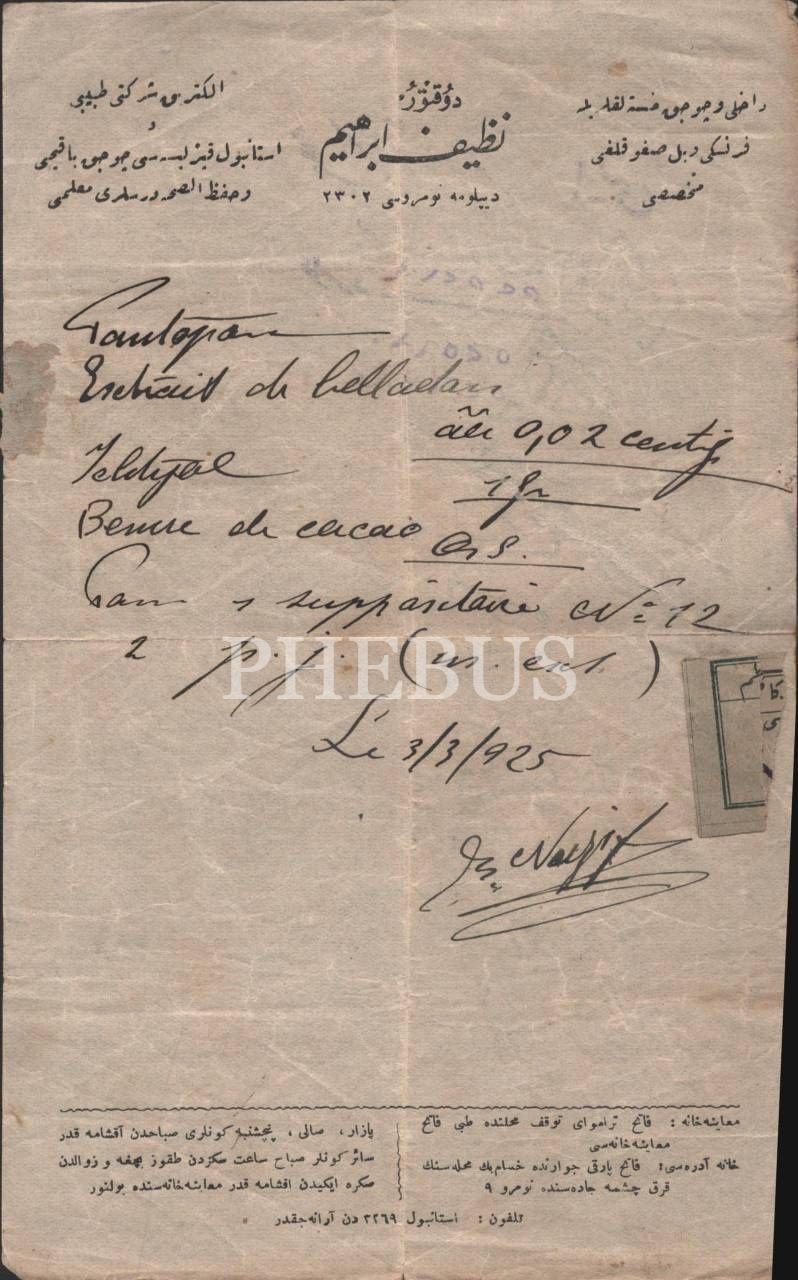 داخلی و چوجق خسته لقلریله
فرنسكی و بل صغوقلغی
متخصصی
دوقتور
نظیف ابراهیم
دیپلومه نومروسی ۲۳۰۲
الكتریق شركتی طبیبی
و
استانبول قیز لیسه سی چوجق باقیجی
و حفظ الصحه درسلری معلمی
Pantopon
Extrait de belladon
āā 0,02 centig
Ichtyol
1 gr
Beurre de cacao
Q.S.
Pour 1 suppositoire No= 12
2 p. j. (us. ext.)
PHEBUS
Le 3/3/925
Dr. Nazif
معاینه خانه : فاتح تراموای توقف محلنده طبی فاتح
معاینه خانه سی
خانه آدره سی : فاتح پارقی جوارنده حسام بك محله سنك
قرق چشمه جاده سنده نومرو ۹
پازار، صالی، پنجشنبه كونلری صباحدن آقشامه قدر
سائر كونلر صباح ساعت سكزدن طقوز بچغه و زوالدن
صكره ایكیدن اقشامه قدر معاینه خانه سنده بولنور
تلفون : استانبول ۲۲۶۹ دن آرانه جقدر